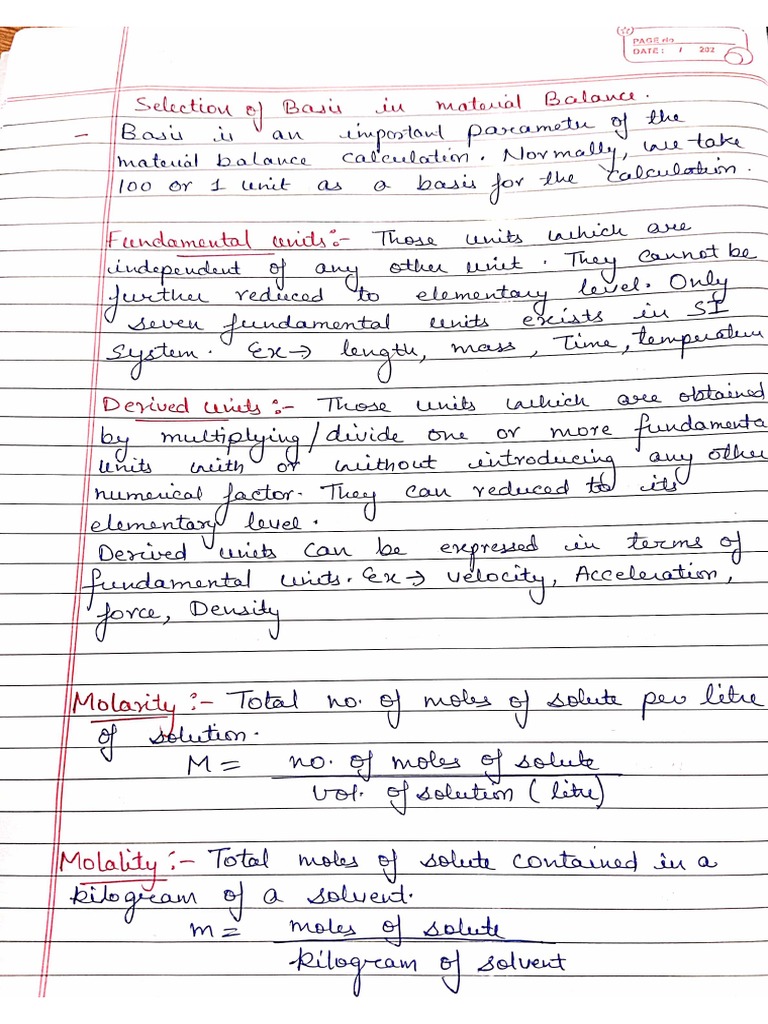 PAGE No
DATE: / 202
Selection of Basis in material Balance.
- Basis is an important parameter of the
material balance calculation. Normally, we take
100 or 1 unit as a basis for the calculation.
Fundamental units:- Those units which are
independent of any other unit. They cannot be
further reduced to elementary level. Only
seven fundamental units exists in SI
System. Ex→ length, mass, Time, temperature
Derived units:- Those units which are obtained
by multiplying/divide one or more fundamental
units with or without introducing any other
numerical factor. They can reduced to its
elementary level.
Derived units can be expressed in terms of
fundamental units. Ex→ velocity, Acceleration,
force, Density
Molarity:- Total no. of moles of solute per litre
of solution.
M = no. of moles of solute
vol. of solution (litre)
Molality:- Total moles of solute contained in a
kilogram of a solvent.
m = moles of solute
kilogram of solvent